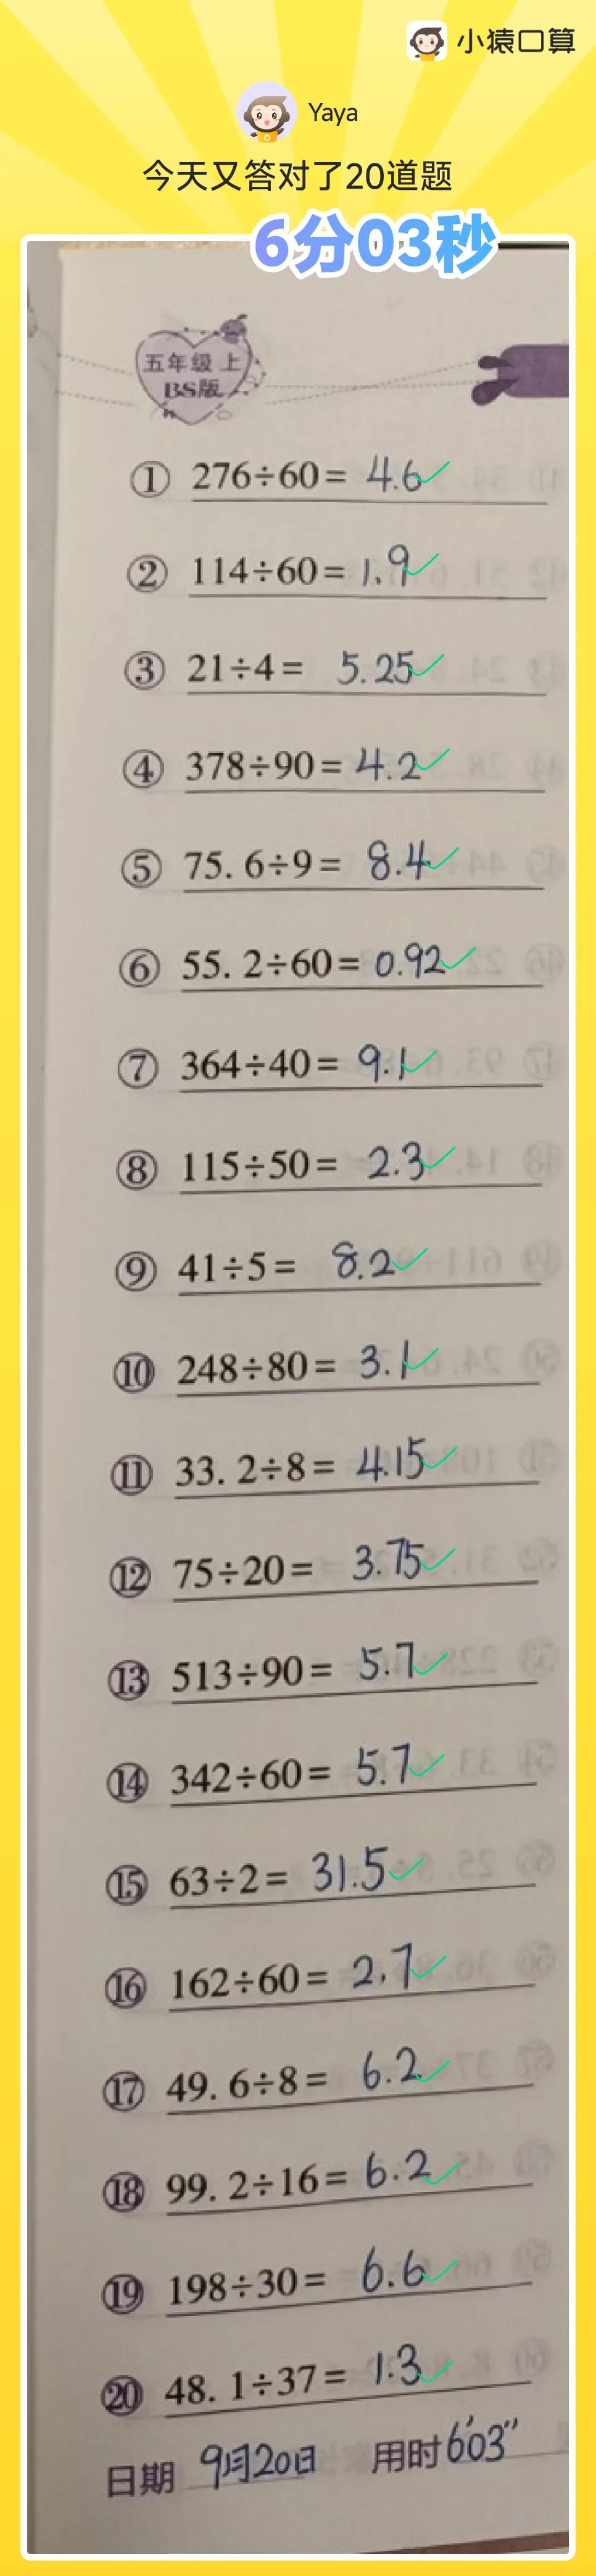 小猿口算
Yaya
今天又答对了20道题
6分03秒
五年级 上
BS版
① 276÷60= 4.6
② 114÷60= 1.9
③ 21÷4= 5.25
④ 378÷90= 4.2
⑤ 75.6÷9= 8.4
⑥ 55.2÷60= 0.92
⑦ 364÷40= 9.1
⑧ 115÷50= 2.3
⑨ 41÷5= 8.2
⑩ 248÷80= 3.1
⑪ 33.2÷8= 4.15
⑫ 75÷20= 3.75
⑬ 513÷90= 5.7
⑭ 342÷60= 5.7
⑮ 63÷2= 31.5
⑯ 162÷60= 2.7
⑰ 49.6÷8= 6.2
⑱ 99.2÷16= 6.2
⑲ 198÷30= 6.6
⑳ 48.1÷37= 1.3
日期 9月20日 用时 6′03″